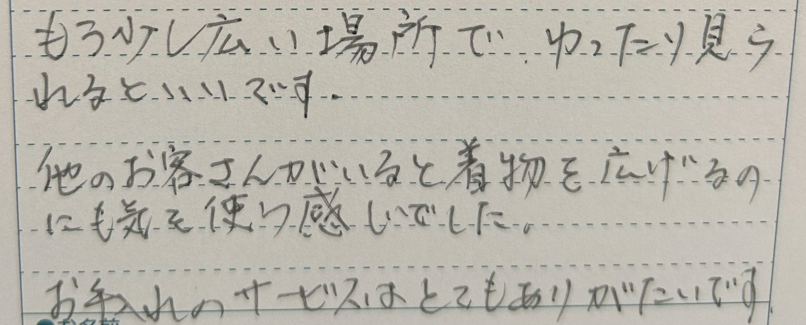 もう少し広い場所で、ゆったり見ら
れるといいです.
他のお客さんがいると着物を広げるの
にも気を使う感じでした。
お手入れのサービスはとてもありがたいです.